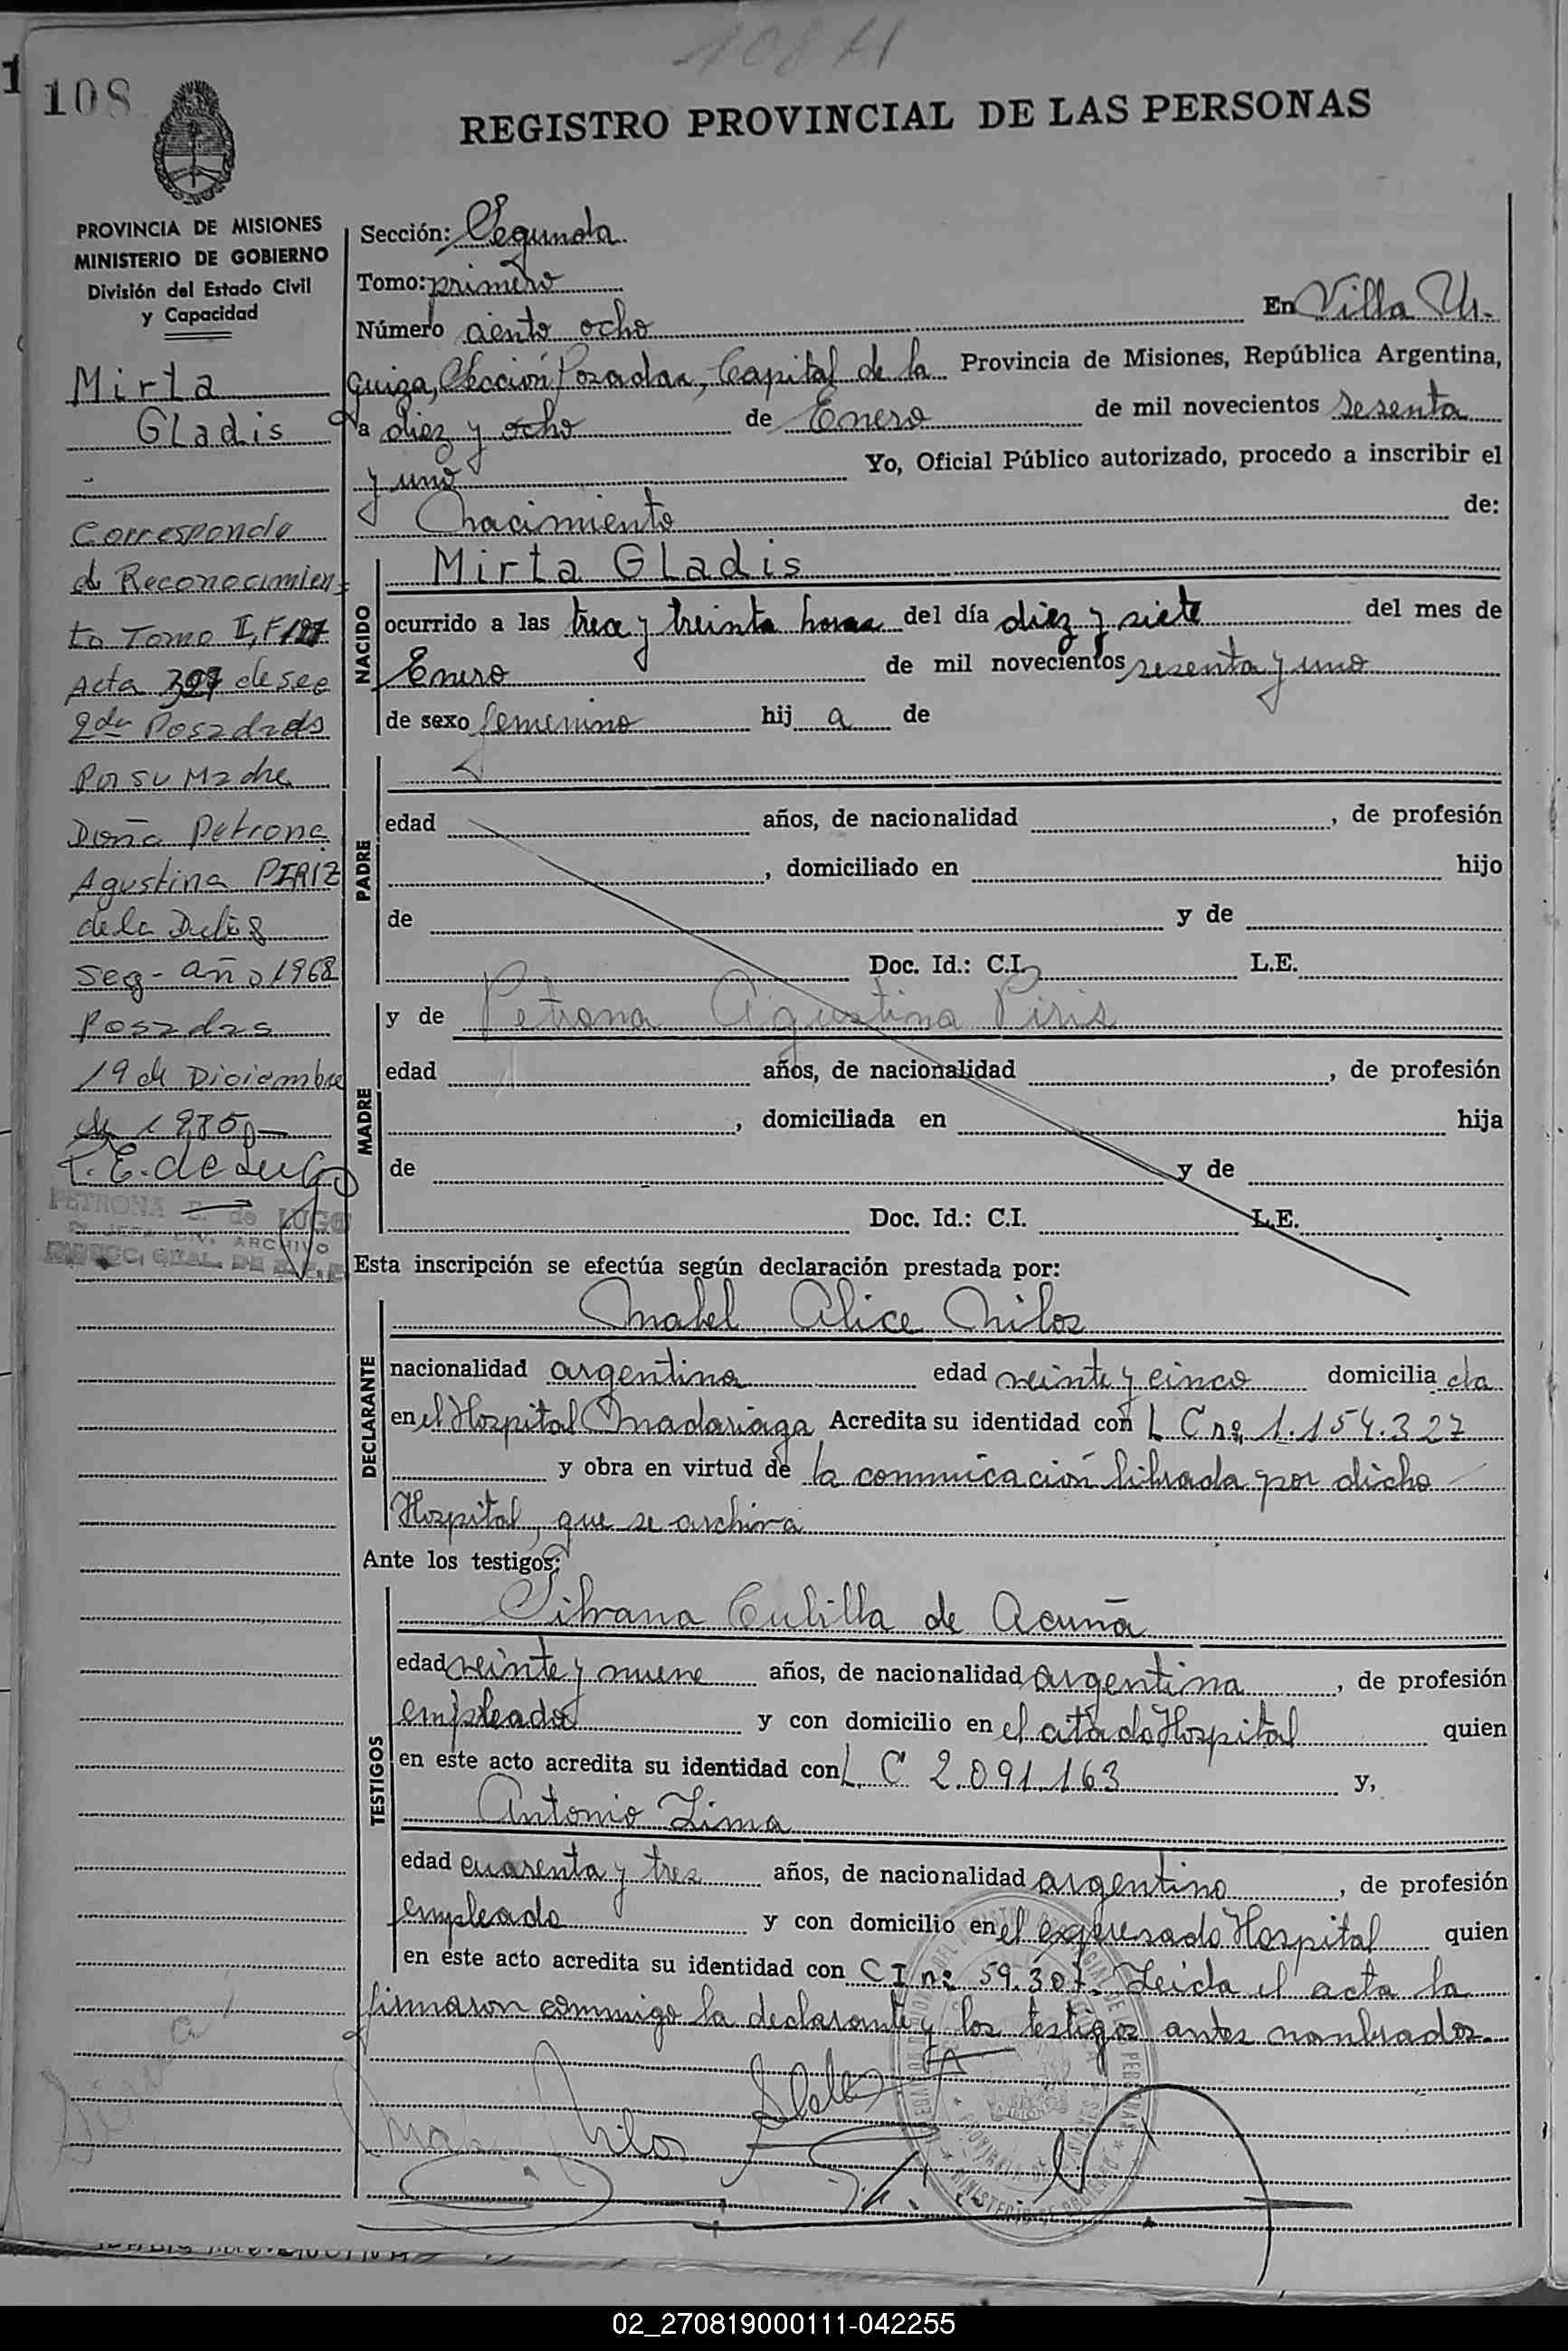 108 H
108
REGISTRO PROVINCIAL DE LAS PERSONAS
PROVINCIA DE MISIONES
MINISTERIO DE GOBIERNO
División del Estado Civil
y Capacidad
Mirta
Gladis
Corresponde
Reconocimien-
to Tomo II, F
Acta de sec
2da Posadas
Por su Madre
Doña Petrona
Agustina PIRIZ
de la
Seg- año 1968
Posadas
19 de Diciembre
de 1985
P. E. de Lugo
PETRONA E. de LUGO
ARCHIVO
DIRECC. GRAL. DE
Sección: Segunda
Tomo: primero
Número ciento ocho En Villa Ur-
quiza, Sección Posadas, Capital de la Provincia de Misiones, República Argentina,
a diez y ocho de Enero de mil novecientos sesenta
y uno Yo, Oficial Público autorizado, procedo a inscribir el
Nacimiento de:
NACIDO
Mirta Gladis
ocurrido a las tres y treinta horas del día diez y siete del mes de
Enero de mil novecientos sesenta y uno
de sexo femenino hij a de
PADRE
edad años, de nacionalidad , de profesión
, domiciliado en hijo
de y de
Doc. Id.: C.I. L.E.
MADRE
y de Petrona Agustina Piris
edad años, de nacionalidad , de profesión
, domiciliada en hija
de y de
Doc. Id.: C.I. L.E.
Esta inscripción se efectúa según declaración prestada por:
DECLARANTE
Mabel Alice Milos
nacionalidad argentina edad veinte y cinco domicilia da
en el Hospital Madariaga Acredita su identidad con L C nº 1.154.327
y obra en virtud de la comunicación librada por dicho
Hospital, que se archiva
Ante los testigos:
TESTIGOS
Silvana Culilla de Acuña
edad veinte y nueve años, de nacionalidad argentina , de profesión
empleada y con domicilio en el citado Hospital quien
en este acto acredita su identidad con L. C 2.091.163 y,
Antonio Lima
edad cuarenta y tres años, de nacionalidad argentino , de profesión
empleado y con domicilio en el expresado Hospital quien
en este acto acredita su identidad con C I nº 59.307. Leída el acta la
firmaron conmigo la declarante y los testigos antes nombrados.
Milos
02_270819000111-042255